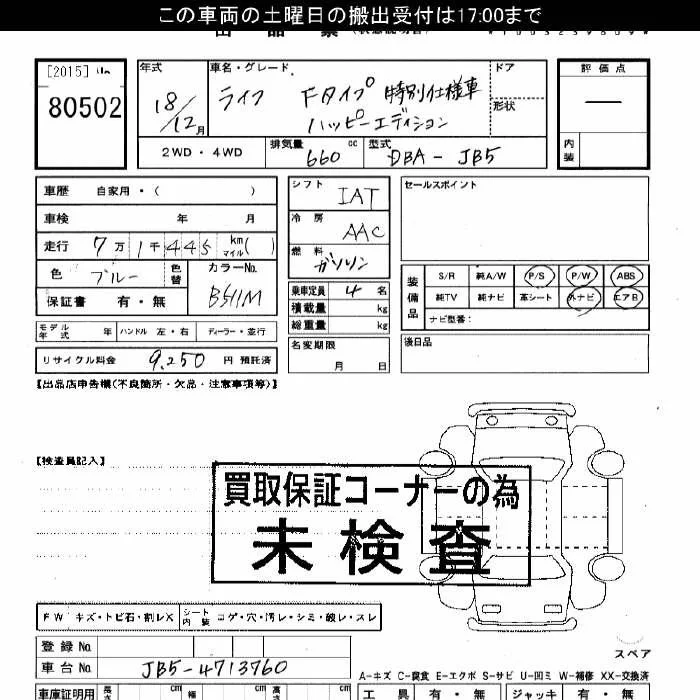 この車両の土曜日の搬出受付は17:00まで
[2015]
80502
年式
18/12月
車名・グレード
ライフ Fタイプ 特別仕様車
ハッピーエディション
ドア
形状
評価点
—
内装
2WD・4WD
排気量 660 cc
型式 DBA-JB5
車歴 自家用・( )
車検 年 月
走行 7万1千445 km マイル( )
色 ブルー
色替
カラーNo. B511M
保証書 有・無
モデル年式 年
ハンドル 左・右
ディーラー・並行
リサイクル料金 9,250 円 預託済
シフト IAT
冷房 AAC
燃料 ガソリン
乗車定員 4 名
積載量 kg
総重量 kg
名変期限
月 日
セールスポイント
装備品
S/R 純A/W P/S P/W ABS
純TV 純ナビ 革シート 外ナビ エアB
ナビ型番：
後日品
【出品店申告欄(不良箇所・欠品・注意事項等)】
【検査員記入】
買取保証コーナーの為
未検査
FW キズ・トビ石・割レX
シート内装 コゲ・穴・汚レ・シミ・破レ・スレ
登録No.
車台No. JB5-4713760
スペア
A-キズ C-腐食 E-エクボ S-サビ U-凹ミ W-補修 XX-交換済
車庫証明用 長さ cm 幅 cm 高さ cm
工具 有・無 ジャッキ 有・無